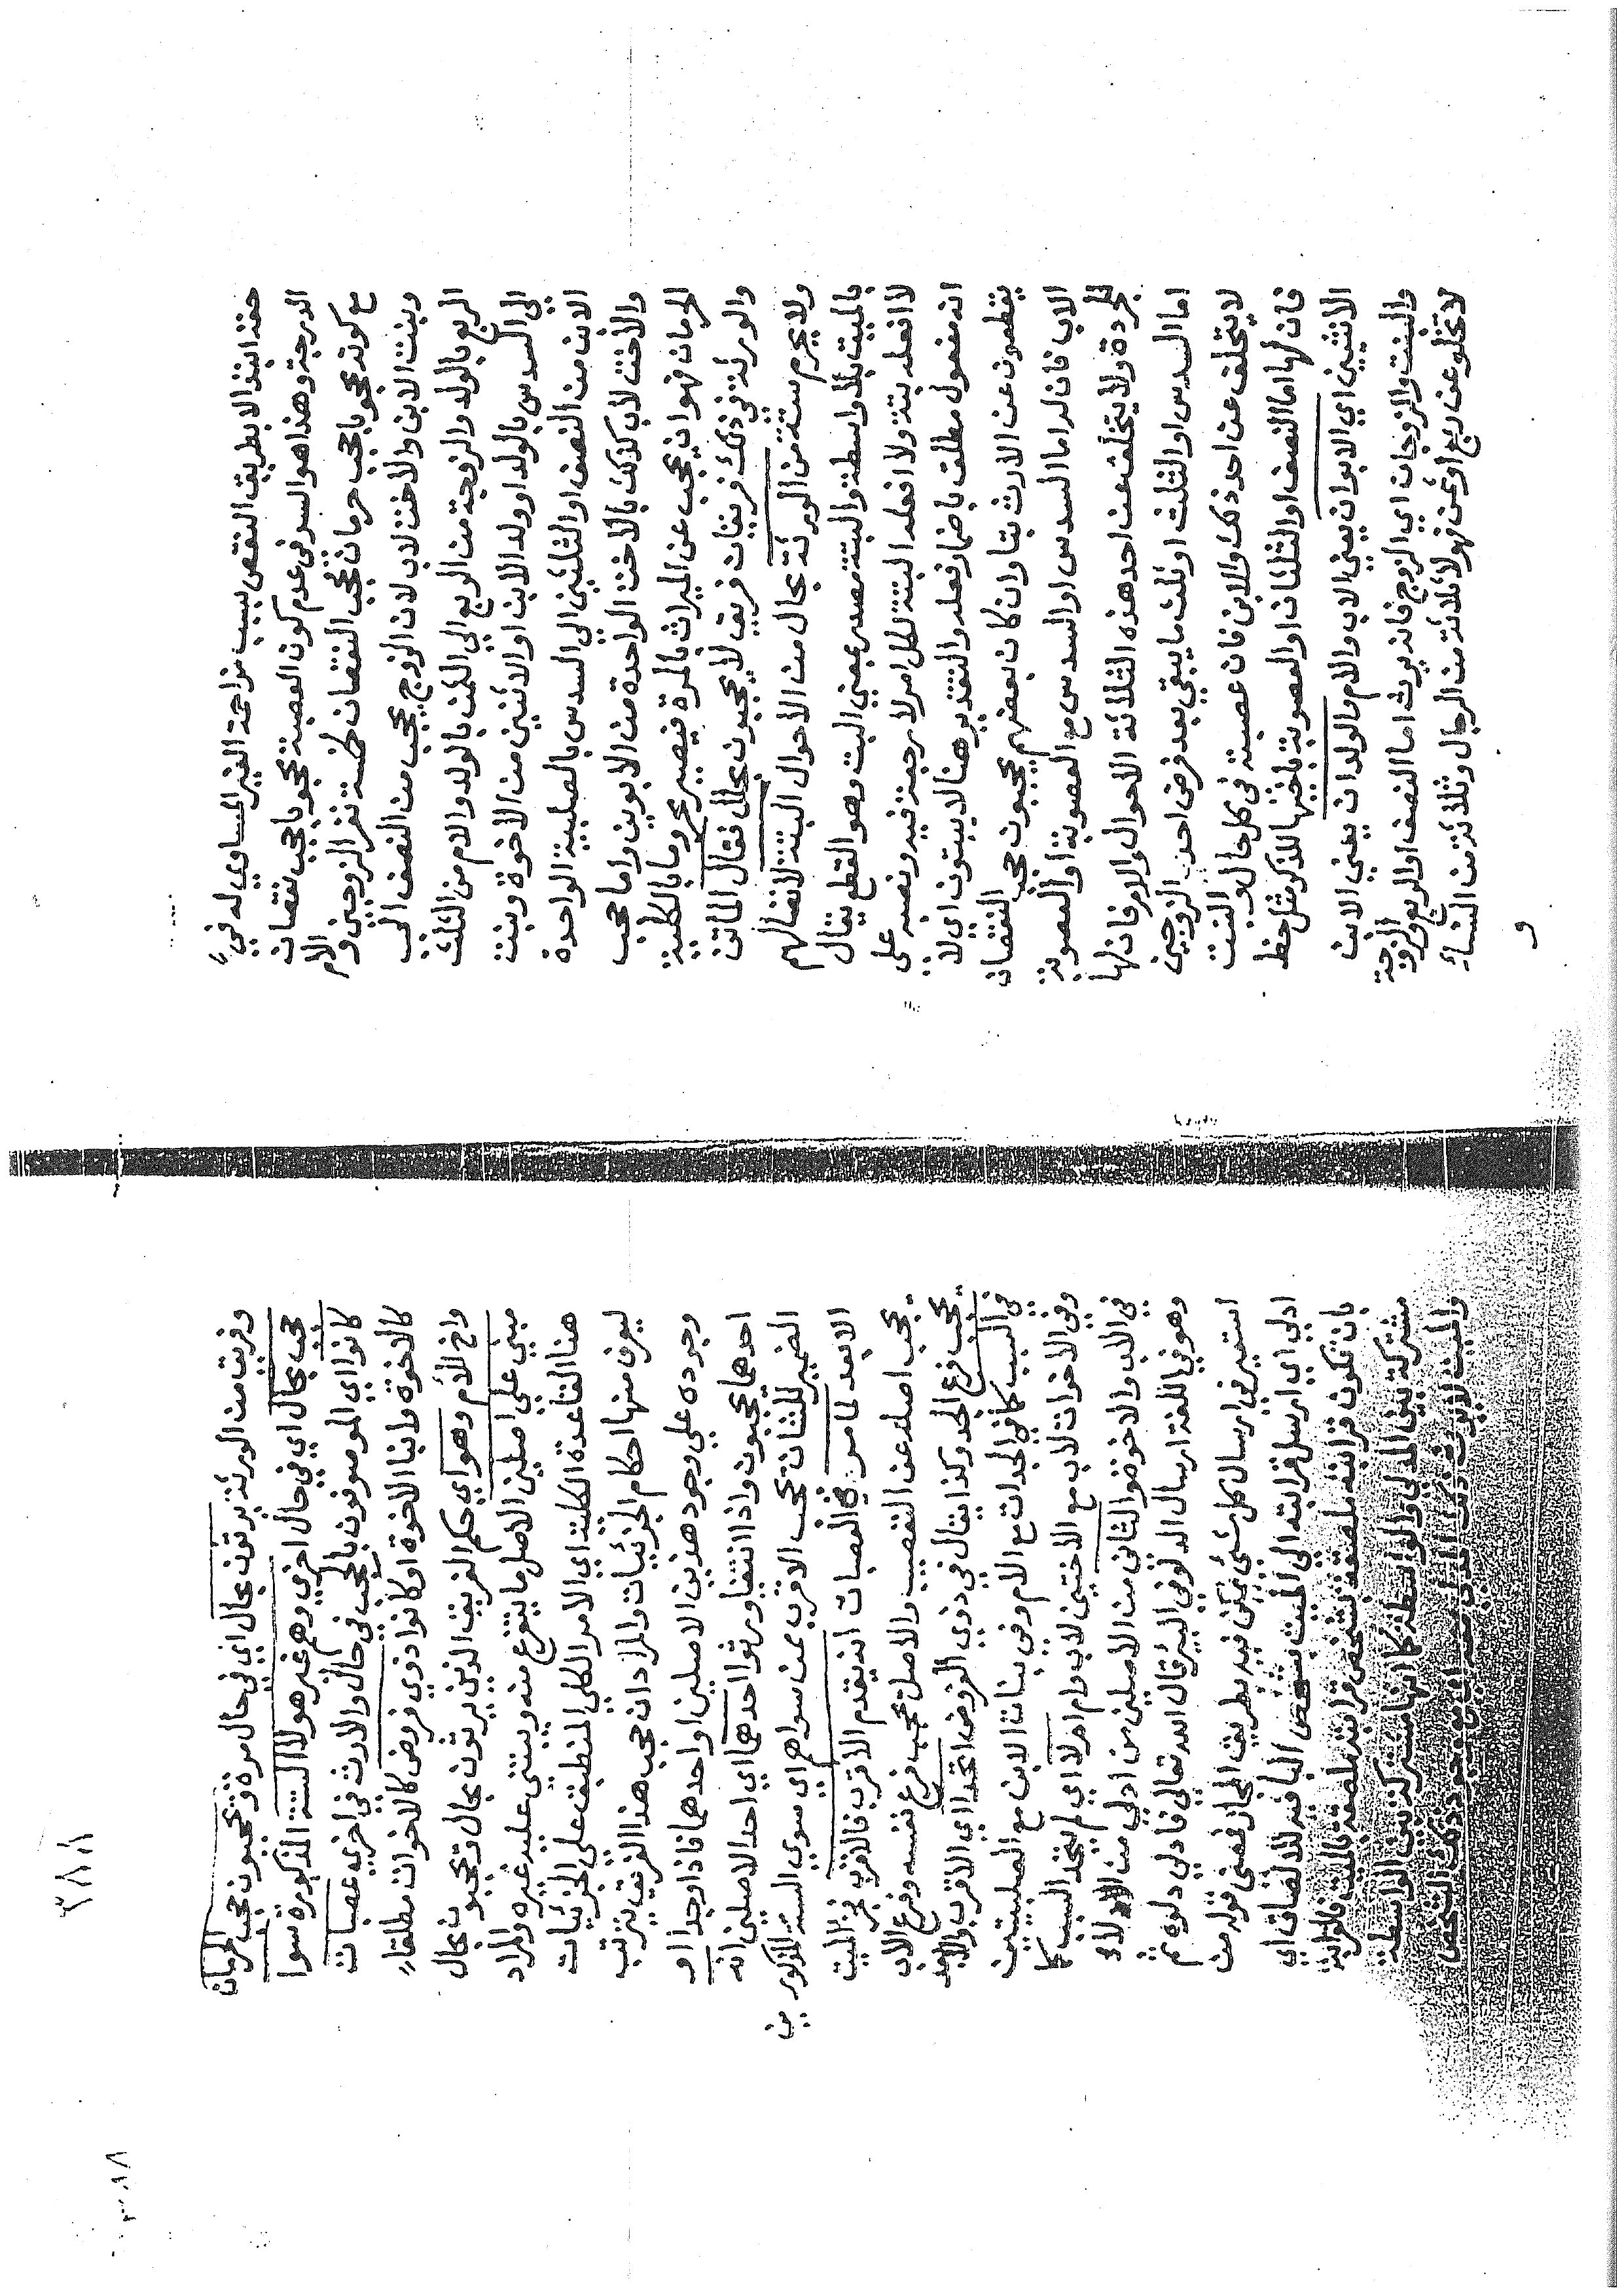 حقه ابتدا الا بطريق النقص بسبب مزاحمة الغير المساوي له في
الدرجة وهذا هو السر في عدم كون العصبة محجوبا بحجب نقصان
مع كونه محجوبا بحجب حرمان فحجب النقصان لخمسة نفر الزوجين و الام
وبنت الابن والاخت لاب لان الزوج يحجب من النصف الى
الربع بالولد والزوجة من الربع الى الثمن بالولد والام من الثلث
الى السدس بالولد او ولد الابن او الاثنين من الاخوة وبنت
الابن من النصف او الثلثين الى السدس بالصلبية الواحدة
والاخت لاب كذلك بالاخت الواحدة من الابوين واما حجب
الحرمان فهو ان يحجب عن الميراث بالمرة فيصير محروما بالكلية
والورثة في ذلك فريقان فريق لا يحجبون بحال فقال الماتن
ولا يحرم ستة من الورثة بحال من الاحوال البتة لاتصالهم
بالميت بلا واسطة والبتة مصدر بمعنى البت وهو القطع يقال
لا افعله بتة ولا افعله البتة لكل امر لا رجعة فيه ونصبه على
انه مفعول مطلق باضمار فعله والتقدير هنا لا يبتون اي لا
يقطعون عن الارث بتا وان كان بعضهم يحجبون حجب النقصان
الاب فان له اما السدس او السدس مع العصوبة او العصوبة
المجردة ولا يتخلف عن احد هذه الثلاثة الاحوال والام فان لها
اما السدس او الثلث او ثلث ما يبقى بعد فرض احد الزوجين
لا يتخلف عن احد ذلك والابن فان عصبته في كل حال والبنت
فان لها اما النصف او الثلثان او العصوبة باخيها للذكر مثل حظ
الانثيين اي الابوان يعني الاب والام والولدان يعني الابن
والبنت والزوجان اي الزوج فانه يرث اما النصف او الربع والزوجة
لا تخلو عن ربع او ثمن فهولا ثلاثة من الرجال وثلاثة من النساء
و
٣٨٨
وفريق من الورثة يرثون بحال اي في حال مرة ويحجبون حجب الحرمان
حجب بحال اي في حال اخرى وهم غير هولا الستة المذكورة سوا
كانوا اي الموصوفون بالحجب في حال والارث في اخرى عصبات
كالاخوة وابنا الاخوة او كانوا ذوي فرض كالاخوات مطلقا
واخ لام وهو اي حكم الفريق الذين يرثون بحال ويحجبون بحال
مبني على اصلين الاصل ما يتفرع منه ويبتني عليه غيره والمراد
هنا القاعدة الكلية اي الامر الكلي المنطبق على الجزئيات
ليعرف منها احكام الجزئيات والمراد ان حجب هذا الفريق يترتب
وجوده على وجود هذين الاصلين او احدهما فاذا وجدا او
احدهما يحجبون واذا انتفيا ورثوا احدهما اي احد الاصلين انه
الضمير للشان يحجب الاقرب ممن سواهم اي سوى الستة المذكورين
الابعد لما مر في العصبات انه يقدم الاقرب فالاقرب فجزء الميت
يحجب اصله عن التعصيب والاصل يحجب فرع نفسه وفرع الاب
يحجب فرع الجد وكذا يقال في ذوي الفروض اتحدا اي الاقرب والابعد
في السبب كما في الجدات مع الام وفي بنات الابن مع الصلبيتين
وفي الاخوات لاب مع الاختين لاب وام ام لا اي لم يتحد السبب كما
في الاب والاخوة والثاني من الاصلين من ادلى من الادلاء
وهو في اللغة ارسال الدلو في البير قال الله تعالى فادلى دلوه ثم
استعير في ارسال كل شيء يمكن فيه بطريق المجاز فمعنى قوله من
ادلى اي ارسل قرابته الى الميت بشخص البا فيه للالصاق اي
بان تكون قرابته ملتصقة بشخص قرابته ملصقة بالميت فالقرابة
مشتركة بين المدلي والواسطة كما انها مشتركة بين الواسطة
والميت لا يرث ذلك المدلي معه اي مع وجود ذلك الشخص